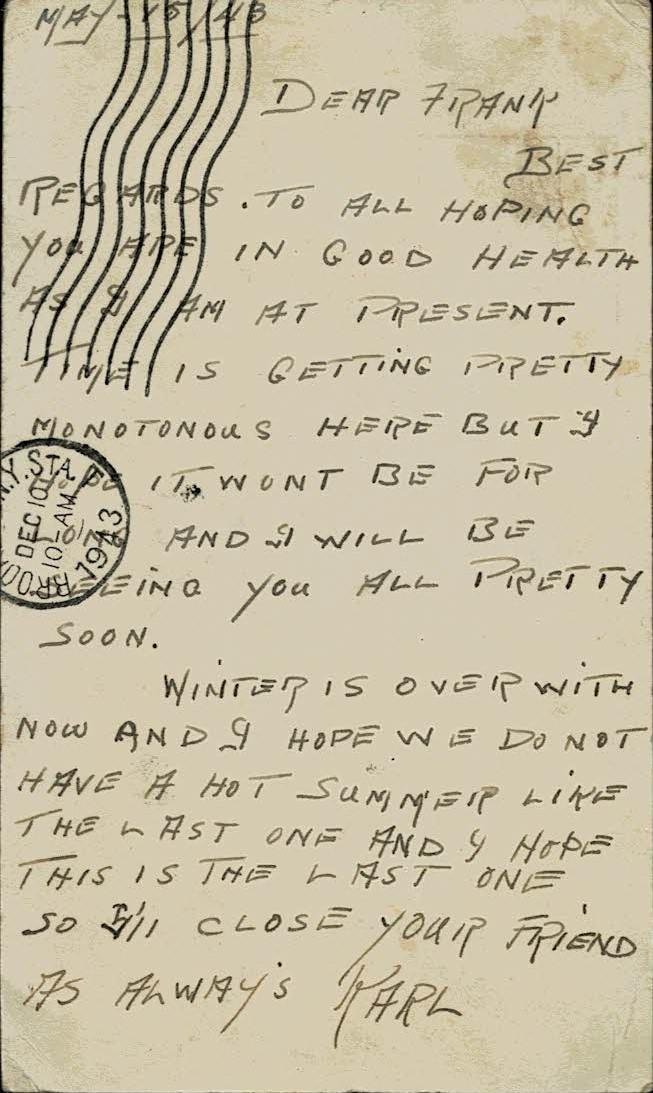 MAY-15/43
DEAR FRANK
BEST
REGARDS. TO ALL HOPING
YOU ARE IN GOOD HEALTH
AS I AM AT PRESENT.
TIME IS GETTING PRETTY
MONOTONOUS HERE BUT I
HOPE IT WONT BE FOR
LONG AND I WILL BE
SEEING YOU ALL PRETTY
SOON.
WINTER IS OVER WITH
NOW AND I HOPE WE DO NOT
HAVE A HOT SUMMER LIKE
THE LAST ONE AND I HOPE
THIS IS THE LAST ONE
SO I'll CLOSE YOUR FRIEND
AS ALWAY'S KARL
N.Y. STA.
DEC 10
10-AM
1943